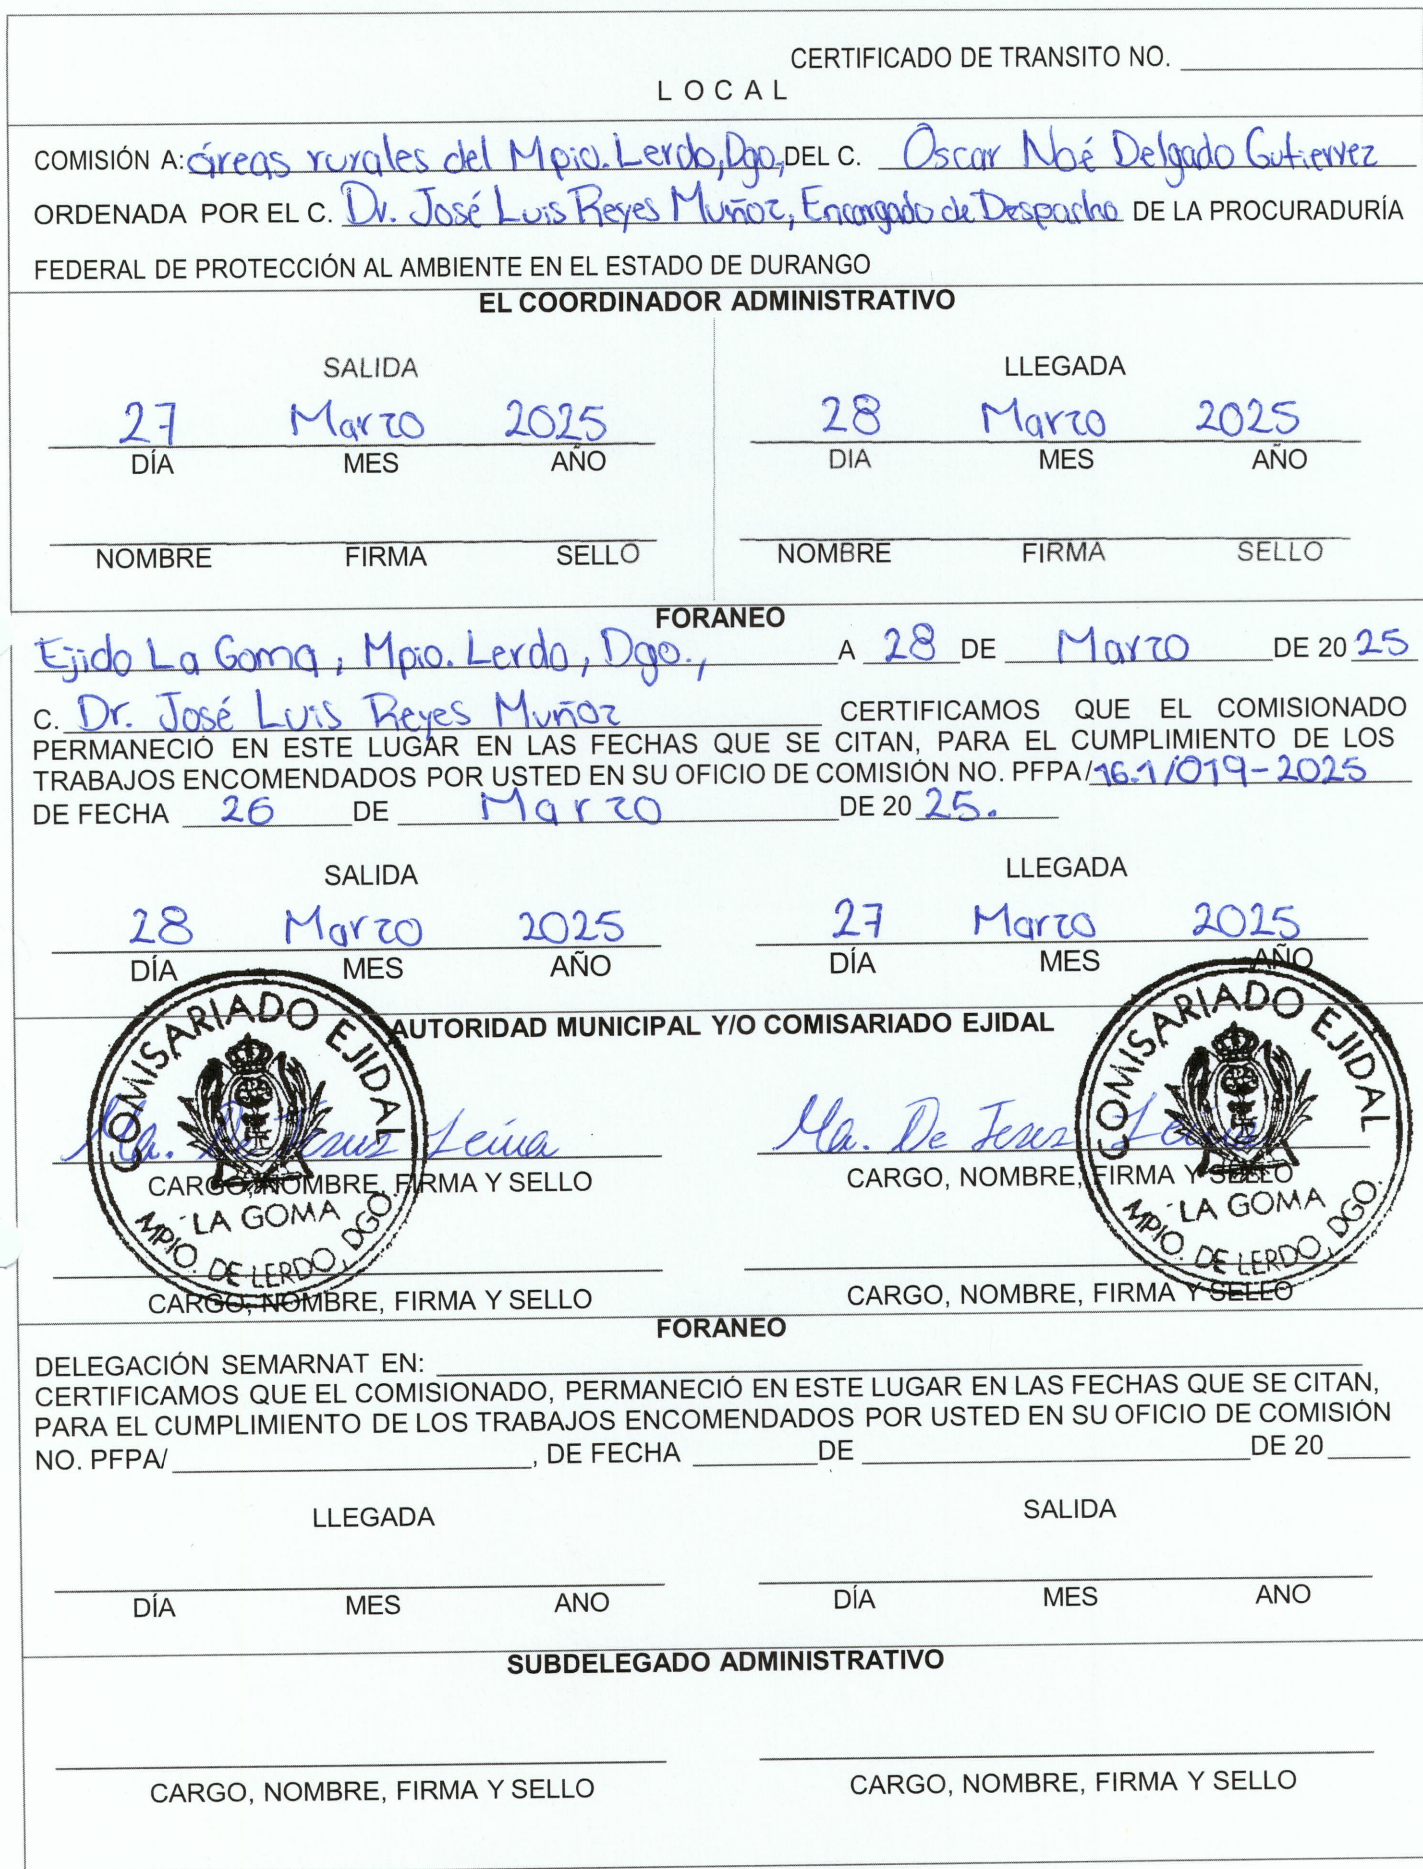 CERTIFICADO DE TRANSITO NO.
LOCAL
COMISIÓN A: áreas rurales del Mpio. Lerdo, Dgo., DEL C. Óscar Noé Delgado Gutierrez
ORDENADA POR EL C. Dr. José Luis Reyes Muñoz, Encargado de Despacho DE LA PROCURADURÍA
FEDERAL DE PROTECCIÓN AL AMBIENTE EN EL ESTADO DE DURANGO
EL COORDINADOR ADMINISTRATIVO
SALIDA LLEGADA
27 Marzo 2025 28 Marzo 2025
DÍA MES AÑO DIA MES AÑO
NOMBRE FIRMA SELLO NOMBRE FIRMA SELLO
FORANEO
Ejido La Goma, Mpio. Lerdo, Dgo., A 28 DE Marzo DE 2025
C. Dr. José Luis Reyes Muñoz CERTIFICAMOS QUE EL COMISIONADO
PERMANECIÓ EN ESTE LUGAR EN LAS FECHAS QUE SE CITAN, PARA EL CUMPLIMIENTO DE LOS
TRABAJOS ENCOMENDADOS POR USTED EN SU OFICIO DE COMISIÓN NO. PFPA/16.1/019-2025
DE FECHA 26 DE Marzo DE 20 25.
SALIDA LLEGADA
28 Marzo 2025 27 Marzo 2025
DÍA MES AÑO DÍA MES AÑO
AUTORIDAD MUNICIPAL Y/O COMISARIADO EJIDAL
COMISARIADO EJIDAL COMISARIADO EJIDAL
Ma. De Jesus Ma. De Jesus
CARGO, NOMBRE, FIRMA Y SELLO CARGO, NOMBRE, FIRMA Y SELLO
LA GOMA LA GOMA
MPIO. DE LERDO, DGO. MPIO. DE LERDO, DGO.
CARGO, NOMBRE, FIRMA Y SELLO CARGO, NOMBRE, FIRMA Y SELLO
FORANEO
DELEGACIÓN SEMARNAT EN:
CERTIFICAMOS QUE EL COMISIONADO, PERMANECIÓ EN ESTE LUGAR EN LAS FECHAS QUE SE CITAN,
PARA EL CUMPLIMIENTO DE LOS TRABAJOS ENCOMENDADOS POR USTED EN SU OFICIO DE COMISIÓN
NO. PFPA/ , DE FECHA DE DE 20
LLEGADA SALIDA
DÍA MES ANO DÍA MES ANO
SUBDELEGADO ADMINISTRATIVO
CARGO, NOMBRE, FIRMA Y SELLO CARGO, NOMBRE, FIRMA Y SELLO